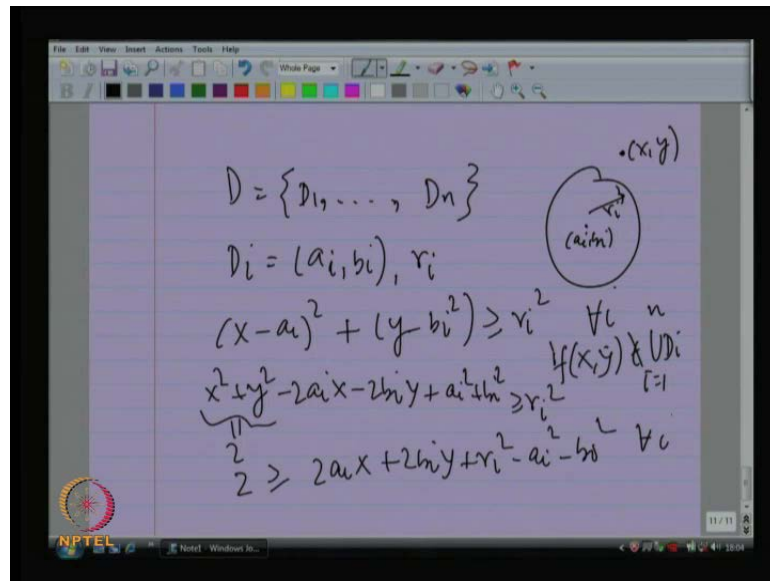 File Edit View Insert Actions Tools Help
Whole Page
B I
D = {D1, ...., Dn}
.(x, y)
Di = (ai, bi), ri
ri
(ai, bi)
(x - ai)^2 + (y - bi^2) ≥ ri^2 ∀i
if (x, y) ∉ ∪Di
n
i=1
x^2 + y^2 - 2aix - 2biy + ai^2 + bi^2 ≥ ri^2
=
2
2 ≥ 2aix + 2biy + ri^2 - ai^2 - bi^2 ∀i
11 / 11
NPTEL
Note1 - Windows Jo...
18:04